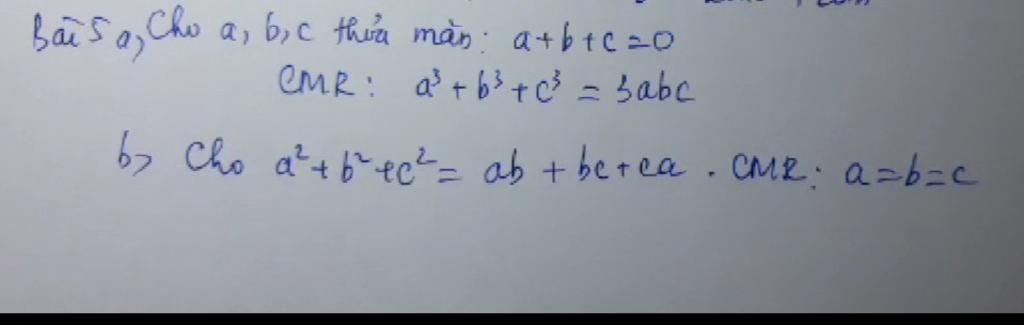 Bài 5 a, Cho a, b, c thỏa mãn: a+b+c=0
CMR: a³ + b³ + c³ = 3abc
b> Cho a² + b² + c² = ab + bc + ca . CMR: a=b=c